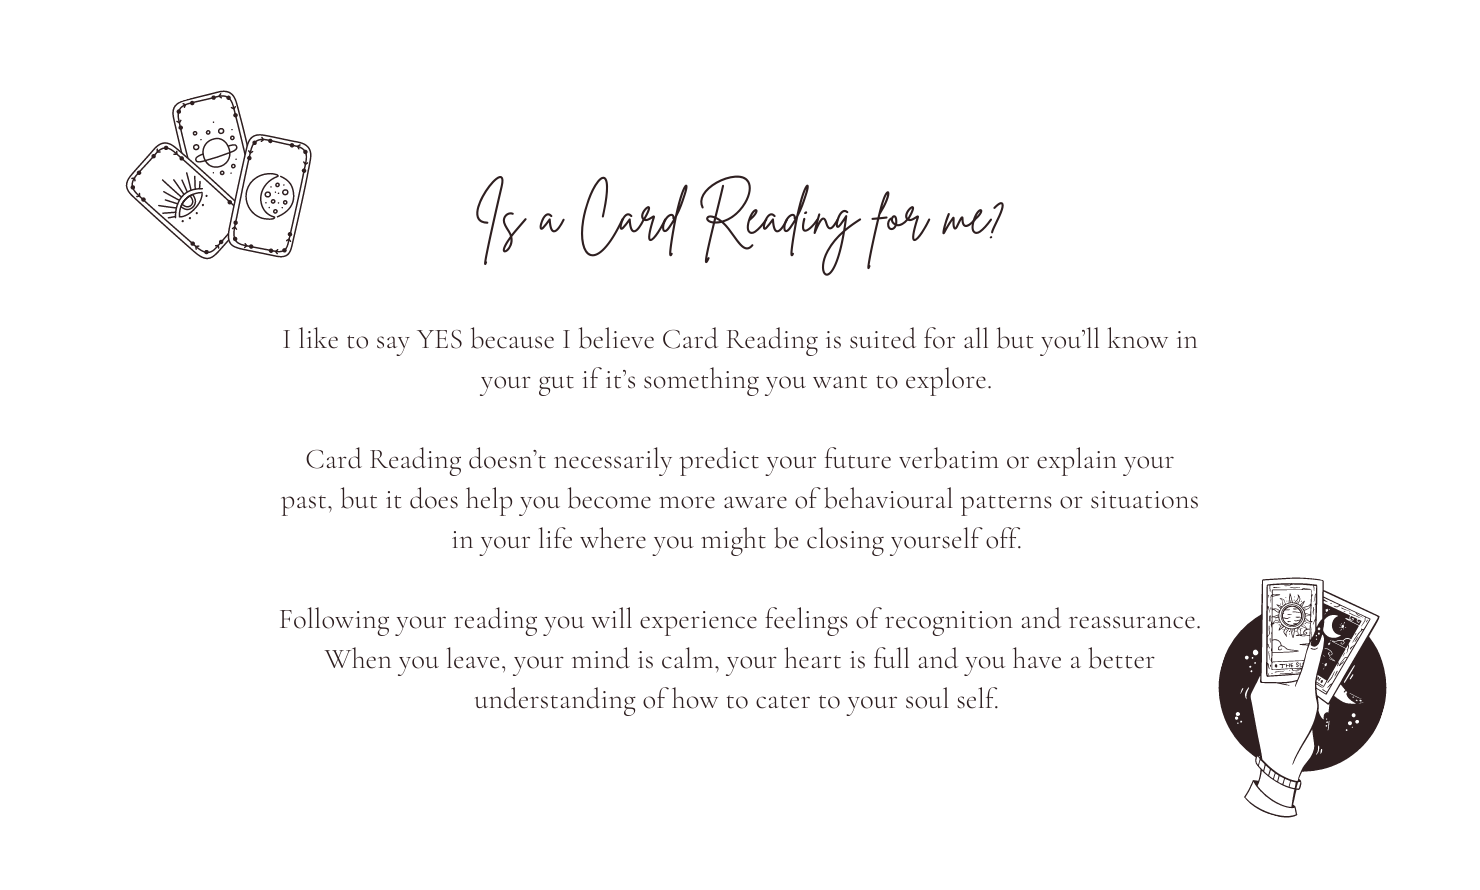 Is a Card Reading for me?
I like to say YES because I believe Card Reading is suited for all but you’ll know in
your gut if it’s something you want to explore.
Card Reading doesn’t necessarily predict your future verbatim or explain your
past, but it does help you become more aware of behavioural patterns or situations
in your life where you might be closing yourself off.
Following your reading you will experience feelings of recognition and reassurance.
When you leave, your mind is calm, your heart is full and you have a better
understanding of how to cater to your soul self.
THE